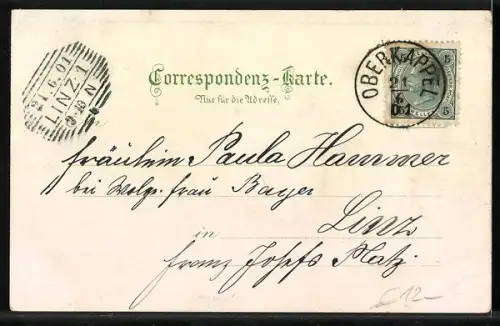 21.6.01
LINZ 1
9-10 N
Correspondenz-Karte.
Nur für die Adresse.
OBERKAPPEL
21
6
01
5 5
5 5
Fräulein Paula Hammer
bei Wolg. Frau Bayer
Linz
in
Franz Josefs Platz.
12-